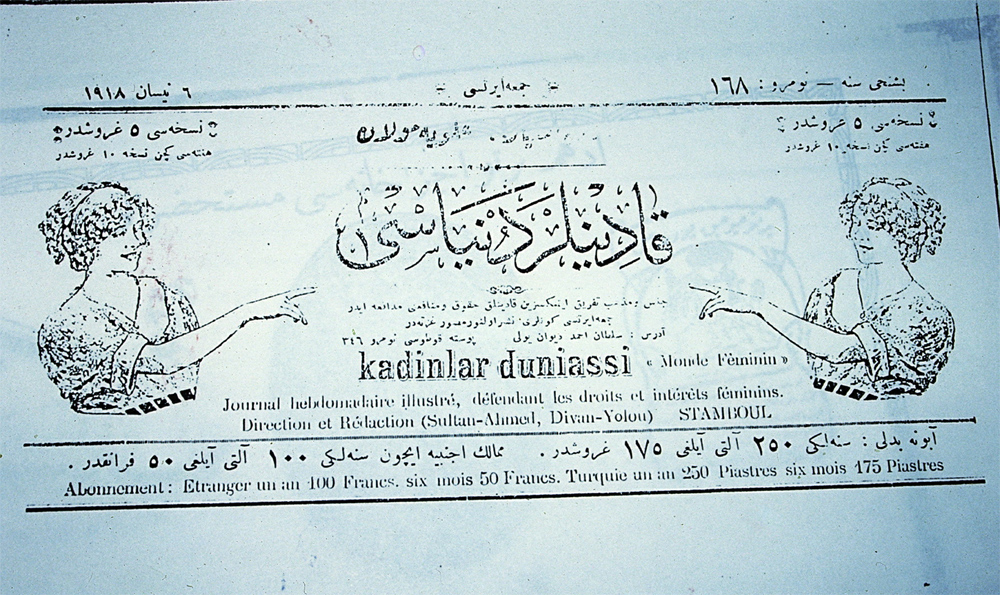 بشنجی سنه — نومرو : ١٦٨
جمعه ایرتسی
٦ نیسان ١٩١٨
نسخه‌سی ٥ غروشدر
هفته‌سی كچن نسخه ١٠ غروشدر
نسخه‌سی ٥ غروشدر
هفته‌سی كچن نسخه ١٠ غروشدر
قادینلر دنیاسی
جنس ومذهب تفریق ایتمكسزین قادینلق حقوق ومنافعنی مدافعه ایدر
جمعه ایرتسی كونلری نشر اولنور مصور غزته‌در
آدرس : سلطان احمد دیوان یولی پوسته قوطوسی نومرو ٣٤٦
kadinlar duniassi « Monde Féminin »
Journal hebdomadaire illustré, défendant les droits et intérêts féminins.
Direction et Rédaction (Sultan-Ahmed, Divan-Yolou) STAMBOUL
آبونه بدلی : سنه‌لكی ٢٥٠ آلتی آیلغی ١٧٥ غروشدر . ممالك اجنبیه ایچون سنه‌لكی ١٠٠ آلتی آیلغی ٥٠ فرانقدر .
Abonnement : Etranger un an 100 Francs. six mois 50 Francs. Turquie un an 250 Piastres six mois 175 Piastres